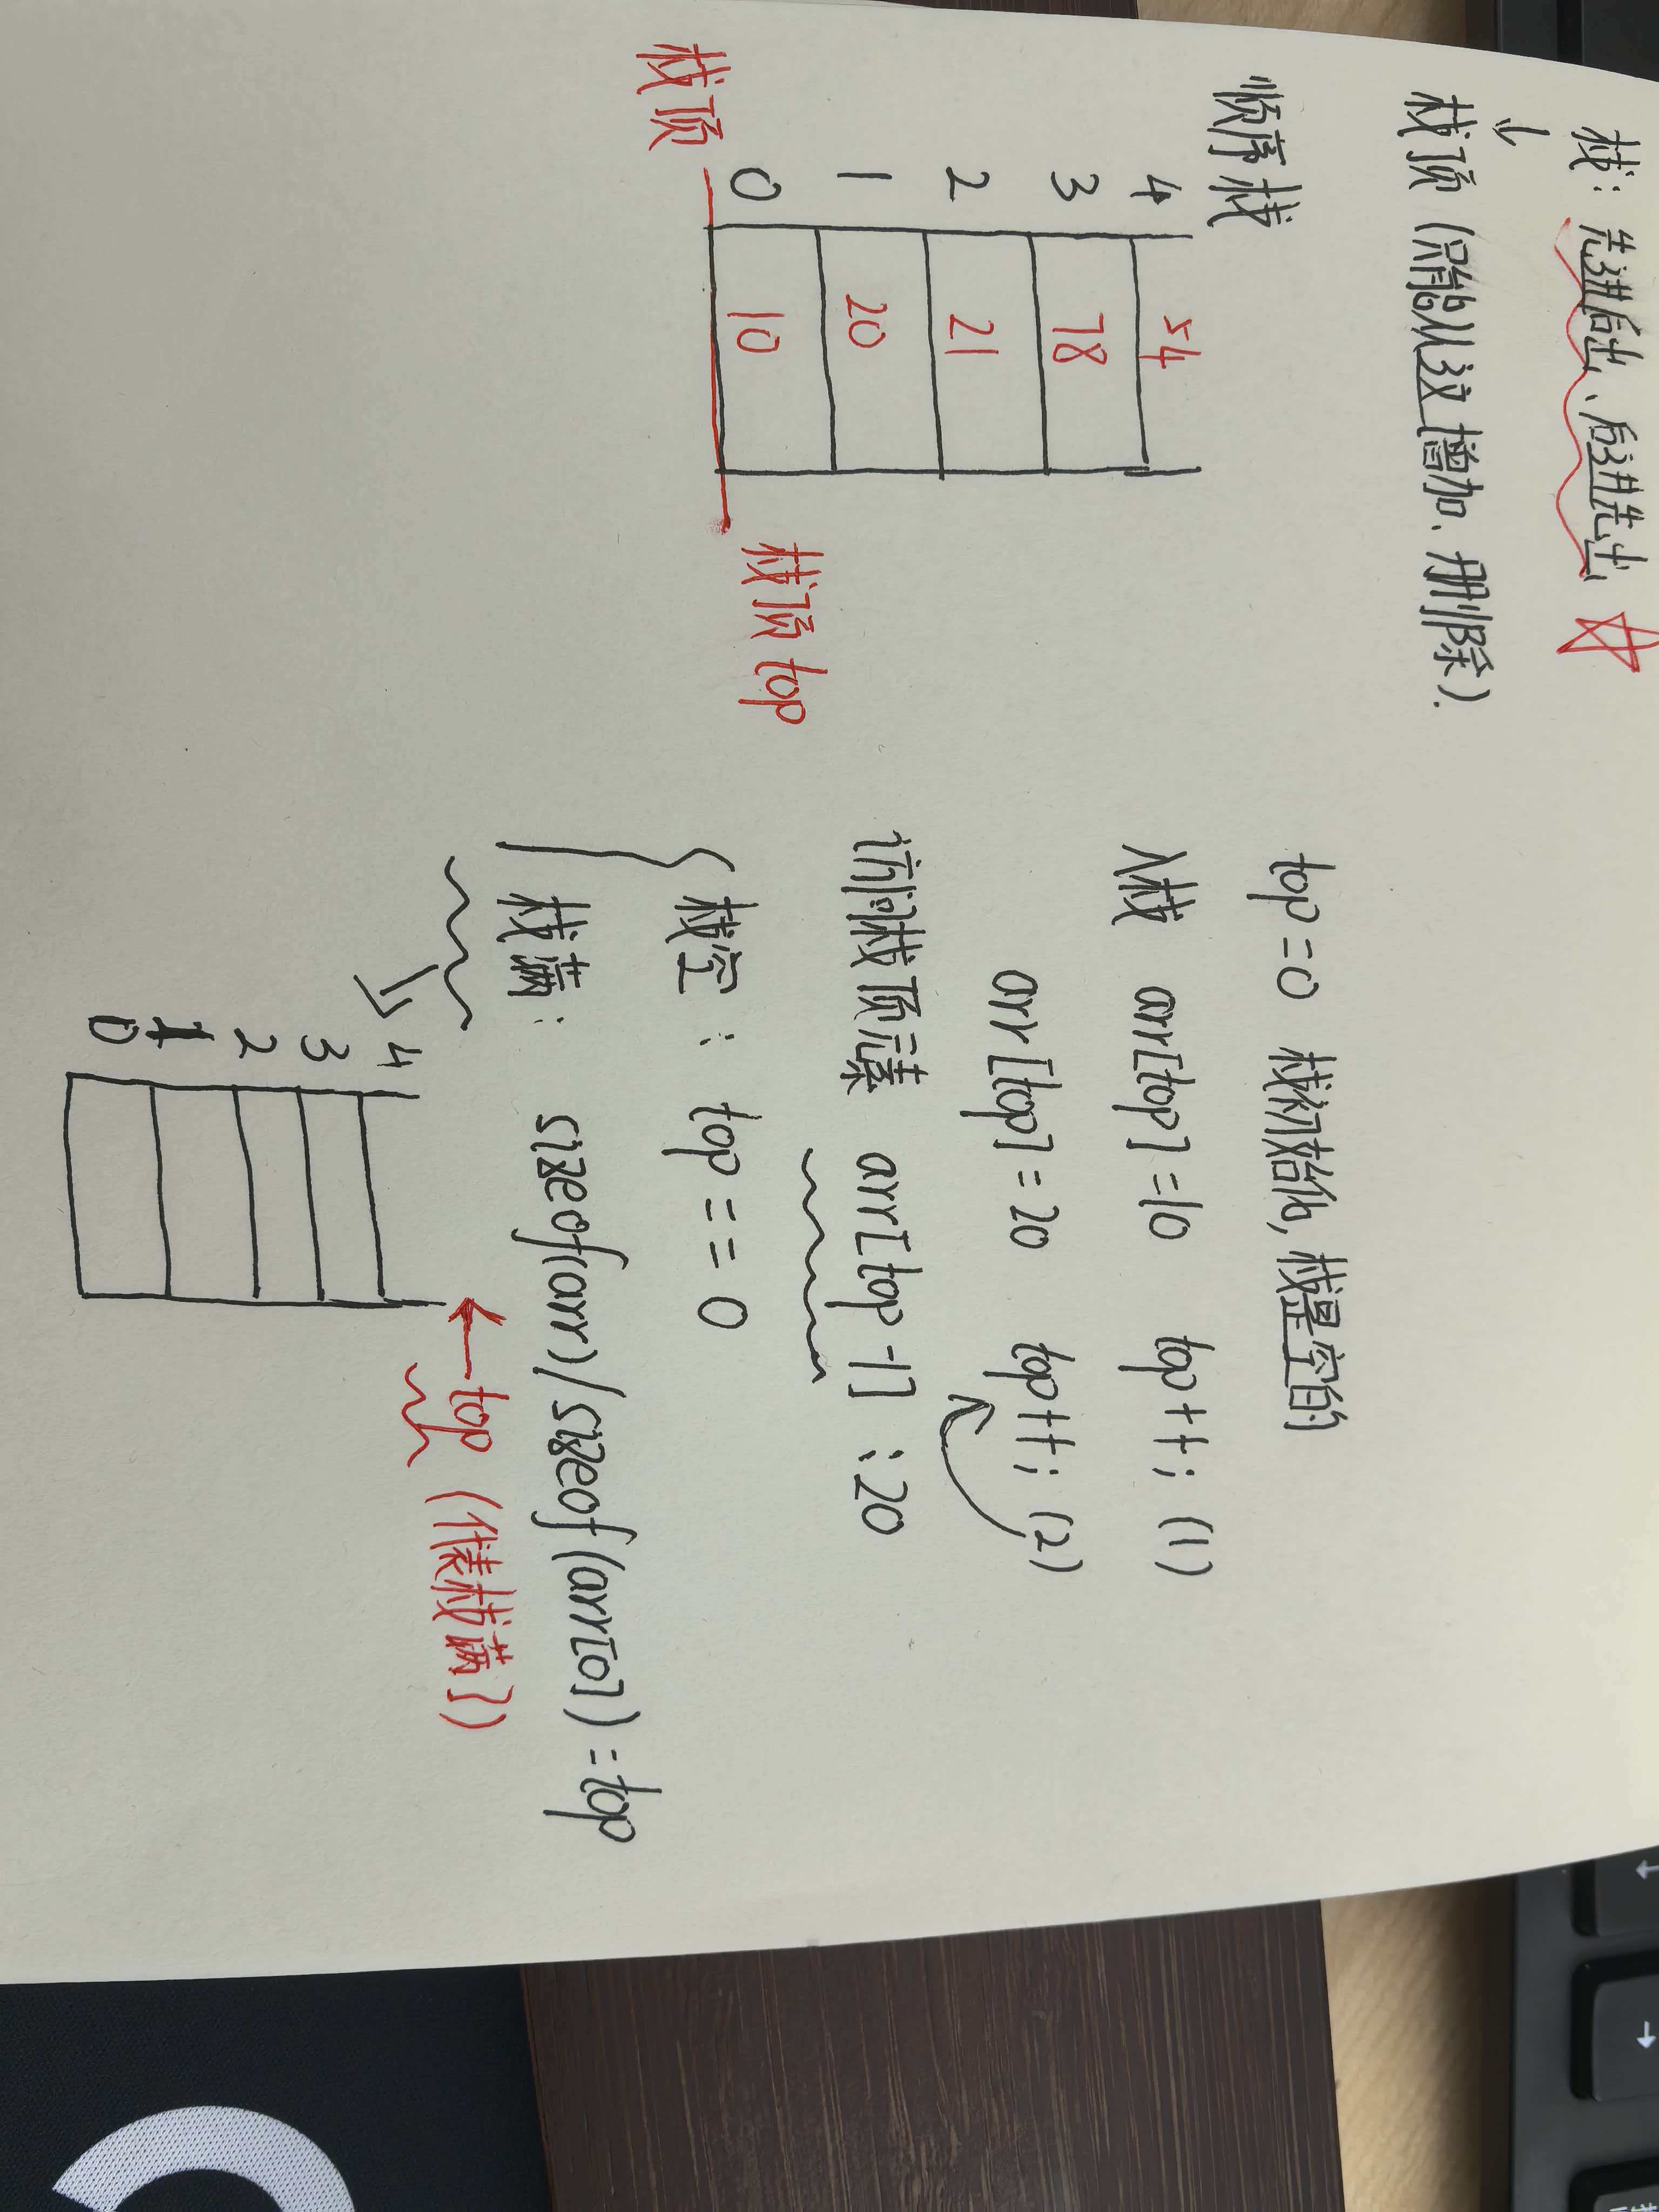 栈：先进后出、后进先出
↓
栈顶（只能从这增加、删除）.
顺序栈
4 54
3 78
2 21
1 20
0 10
栈顶
栈顶 top
top=0 栈初始化,栈是空的
入栈 arr[top]=10 top++; (1)
arr[top]=20 top++; (2)
访问栈顶元素 arr[top-1] :20
栈空: top==0
栈满: sizeof(arr)/sizeof(arr[0])=top
4
3
2
1
0
←top (代表栈满了)